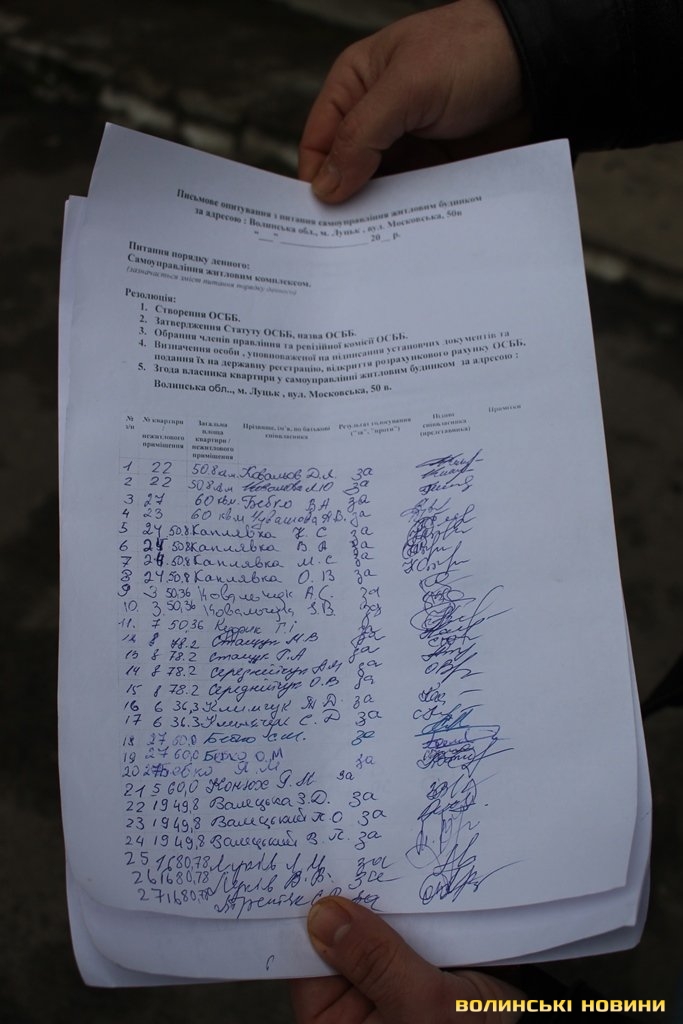 Письмове опитування з питання самоуправління житловим будинком
за адресою : Волинська обл., м. Луцьк , вул. Московська, 50в
"___" ____________ 20__ р.
Питання порядку денного:
Самоуправління житловим комплексом.
(зазначається зміст питання порядку денного)
Резолюція:
1. Створення ОСББ.
2. Затвердження Статуту ОСББ, назва ОСББ.
3. Обрання членів правління та ревізійної комісії ОСББ.
4. Визначення особи , уповноваженої на підписання установчих документів та
подання їх на державну реєстрацію, відкриття розрахункового рахунку ОСББ.
5. Згода власника квартири у самоуправлінні житловим будинком за адресою :
Волинська обл.., м. Луцьк , вул. Московська, 50 в.
№ з/п № квартири / нежитлового приміщення Загальна площа квартири / нежитлового приміщення Прізвище, ім'я, по батькові співвласника Результат голосування ("за", "проти") Підпис співвласника (представника) Примітки
1 22 50.8 Ковальов Д.Я за
2 22 50.8 М.Ю за
3 27 60 кв. Бебко В А за
4 23 60 кв.м А.В. за
5 24 50.8 Каплявка Н. С за
6 24 50.8 Каплявка В А за
7 24 50.8 Каплявка М. С за
8 24 50.8 Каплявка О. В за
9 3 50,36 Ковальчук А.С. за
10. 3. 50,36 Ковальчук З.В. за
11. 7 50,36 Т.І за
12 8 78.2 Стащук М.В за
13 8 78.2 Стащук Г.А за
14 8 78.2 Середнійчук за
15 8 78.2 Середнійчук О.В за
16 6 36,3 Климчук Т Д. за
17 6 36.3 С. Д за
18 27 60.0 за
19 27 60,0 О.М за
20 27 Я.М
21 5 60,0 Конюх Г. М за
22 19 49,8 Валецька З.Д. за
23 19 49,8 Валецький П О за
24 19 49,8 Валецький В. П. за
25 16 80,78 Луків за
26 16 80,78 Луків В.В. за
27 16 80,78
ВОЛИНСЬКІ НОВИНИ